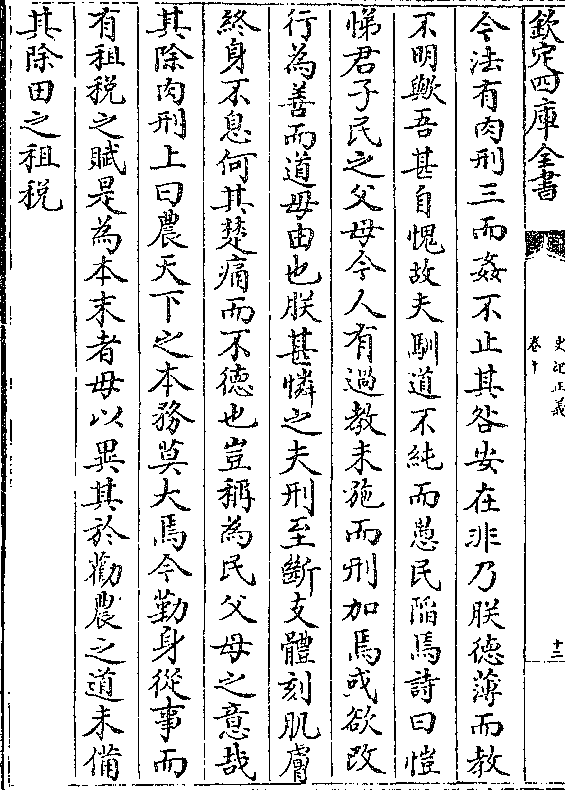 欽定四庫全書
史記正義
卷十
十三
令法有肉刑三而姦不止其咎安在非乃朕德薄而教
不明歟吾甚自愧故夫馴道不純而愚民陷焉詩曰愷
悌君子民之父母今人有過教未施而刑加焉或欲改
行為善而道毋由也朕甚憐之夫刑至斷支體刻肌膚
終身不息何其楚痛而不德也豈稱為民父母之意哉
其除肉刑上曰農天下之本務莫大焉今勤身從事而
有租税之賦是為本末者毋以異其於勸農之道未備
其除田之租税